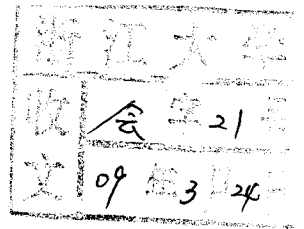 浙江大学
收文
会字21号
09年3月24日